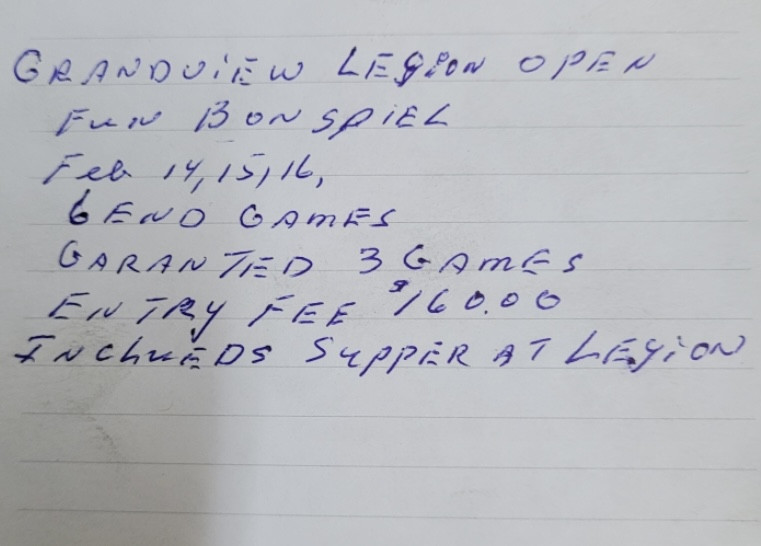 GRANDVIEW LEGION OPEN
FUN BONSPIEL
Feb 14, 15, 16,
6 END GAMES
GARANTED 3 GAMES
ENTRY FEE $160.00
INCLUEDS SUPPER AT LEGION